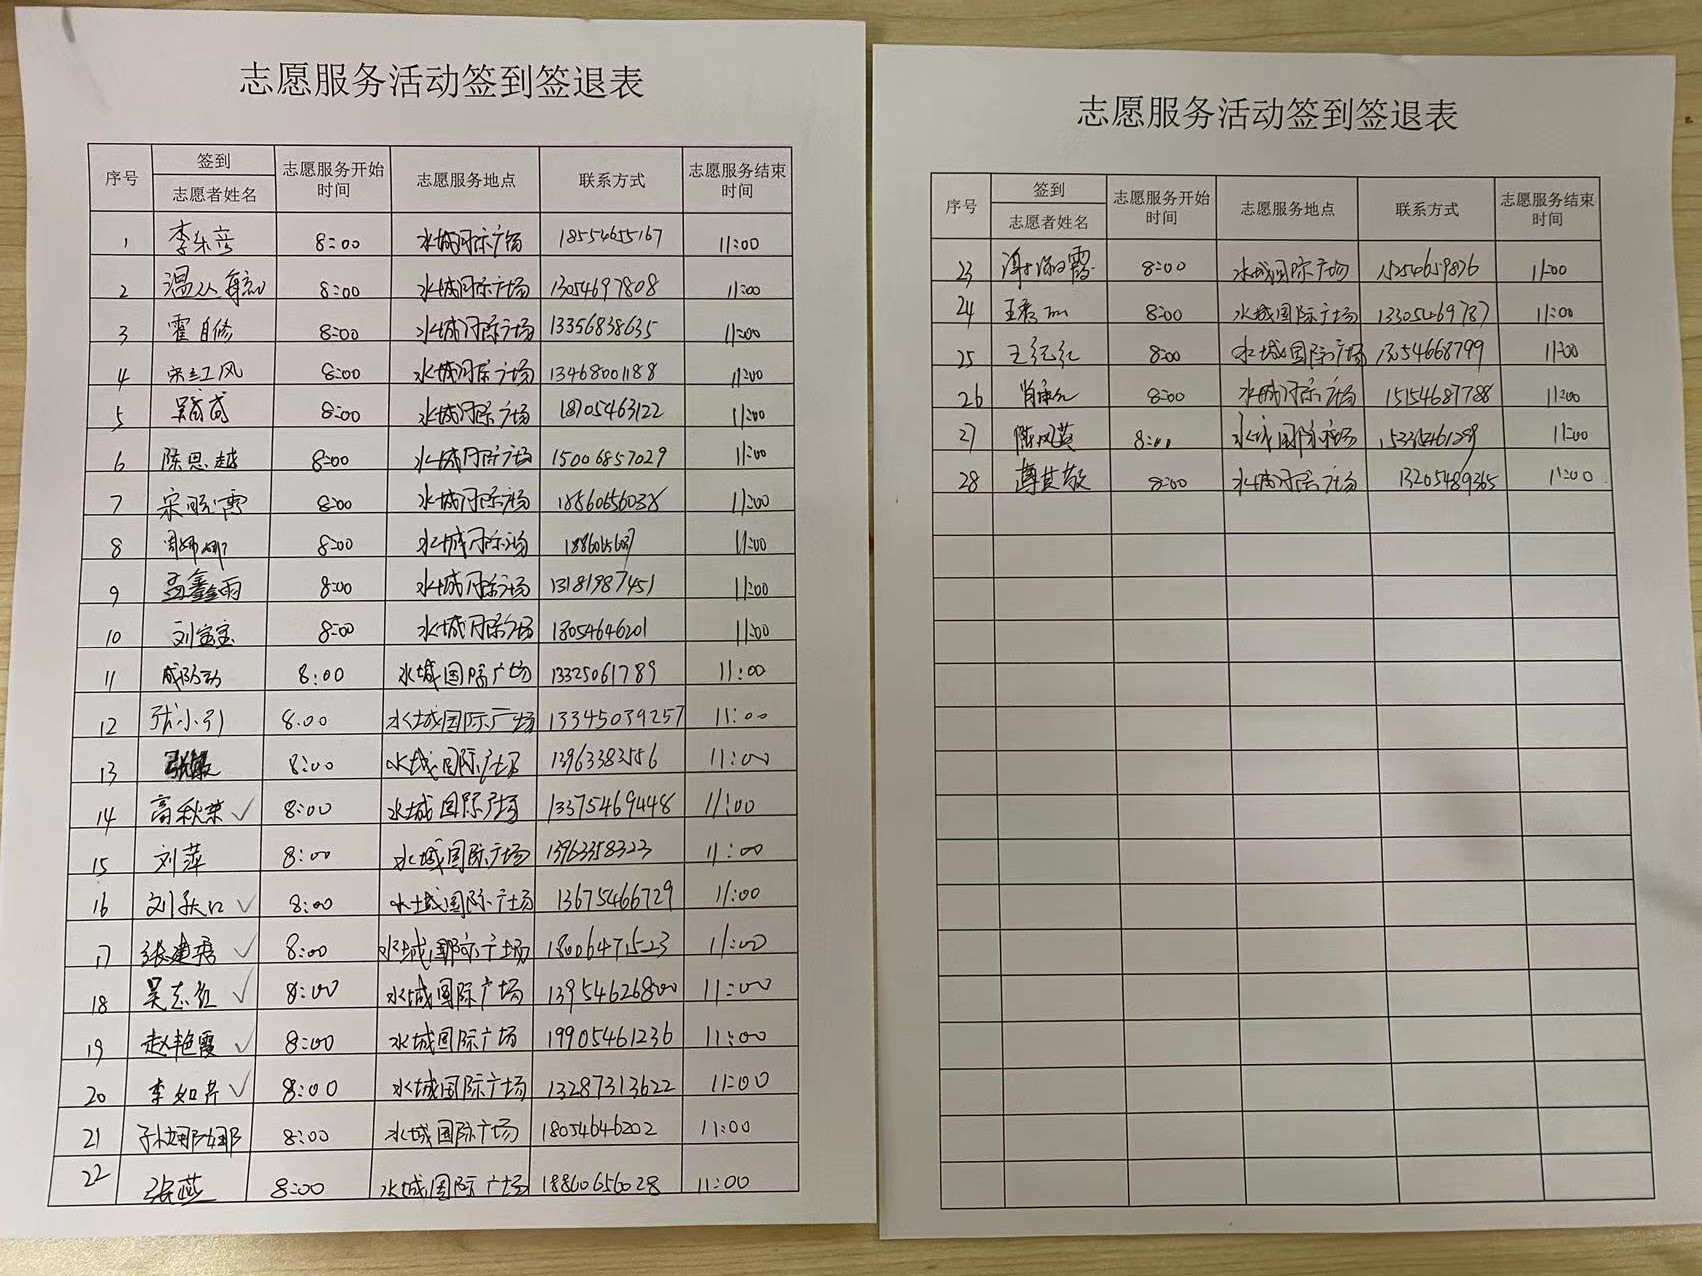 志愿服务活动签到签退表
序号 签到 志愿者姓名 志愿服务开始时间 志愿服务地点 联系方式 志愿服务结束时间
1 8:00 水城国际广场 18554655167 11:00
2 8:00 水城国际广场 13054697808 11:00
3 霍自修 8:00 水城国际广场 13356838635 11:00
4 8:00 水城国际广场 13468001188 11:00
5 8:00 水城国际广场 18705463122 11:00
6 陈思越 8:00 水城国际广场 15006857029 11:00
7 宋晓霄 8:00 水城国际广场 11:00
8 周娜娜 8:00 水城国际广场 11:00
9 孟鑫雨 8:00 水城国际广场 13181987451 11:00
10 刘宝宝 8:00 水城国际广场 18054646201 11:00
11 8:00 水城国际广场 13325061789 11:00
12 张小引 8:00 水城国际广场 13345039257 11:00
13 8:00 水城国际广场 13963383556 11:00
14 高秋荣 ✓ 8:00 水城国际广场 13375469448 11:00
15 刘萍 8:00 水城国际广场 13963358323 11:00
16 ✓ 8:00 水城国际广场 13675466729 11:00
17 张建秀 ✓ 8:00 水城国际广场 18006471523 11:00
18 吴志红 ✓ 8:00 水城国际广场 13954626800 11:00
19 赵艳霞 ✓ 8:00 水城国际广场 19905461236 11:00
20 李如芹 ✓ 8:00 水城国际广场 13287313622 11:00
21 孙娜娜 8:00 水城国际广场 18054646202 11:00
22 张燕 8:00 水城国际广场 18860656028 11:00
志愿服务活动签到签退表
序号 签到 志愿者姓名 志愿服务开始时间 志愿服务地点 联系方式 志愿服务结束时间
23 8:00 水城国际广场 15254659876 11:00
24 8:00 水城国际广场 13305469787 11:00
25 王红红 8:00 水城国际广场 13054668799 11:00
26 8:00 水城国际广场 15154687788 11:00
27 陈凤英 8:00 水城国际广场 11:00
28 8:00 水城国际广场 13205489365 11:00